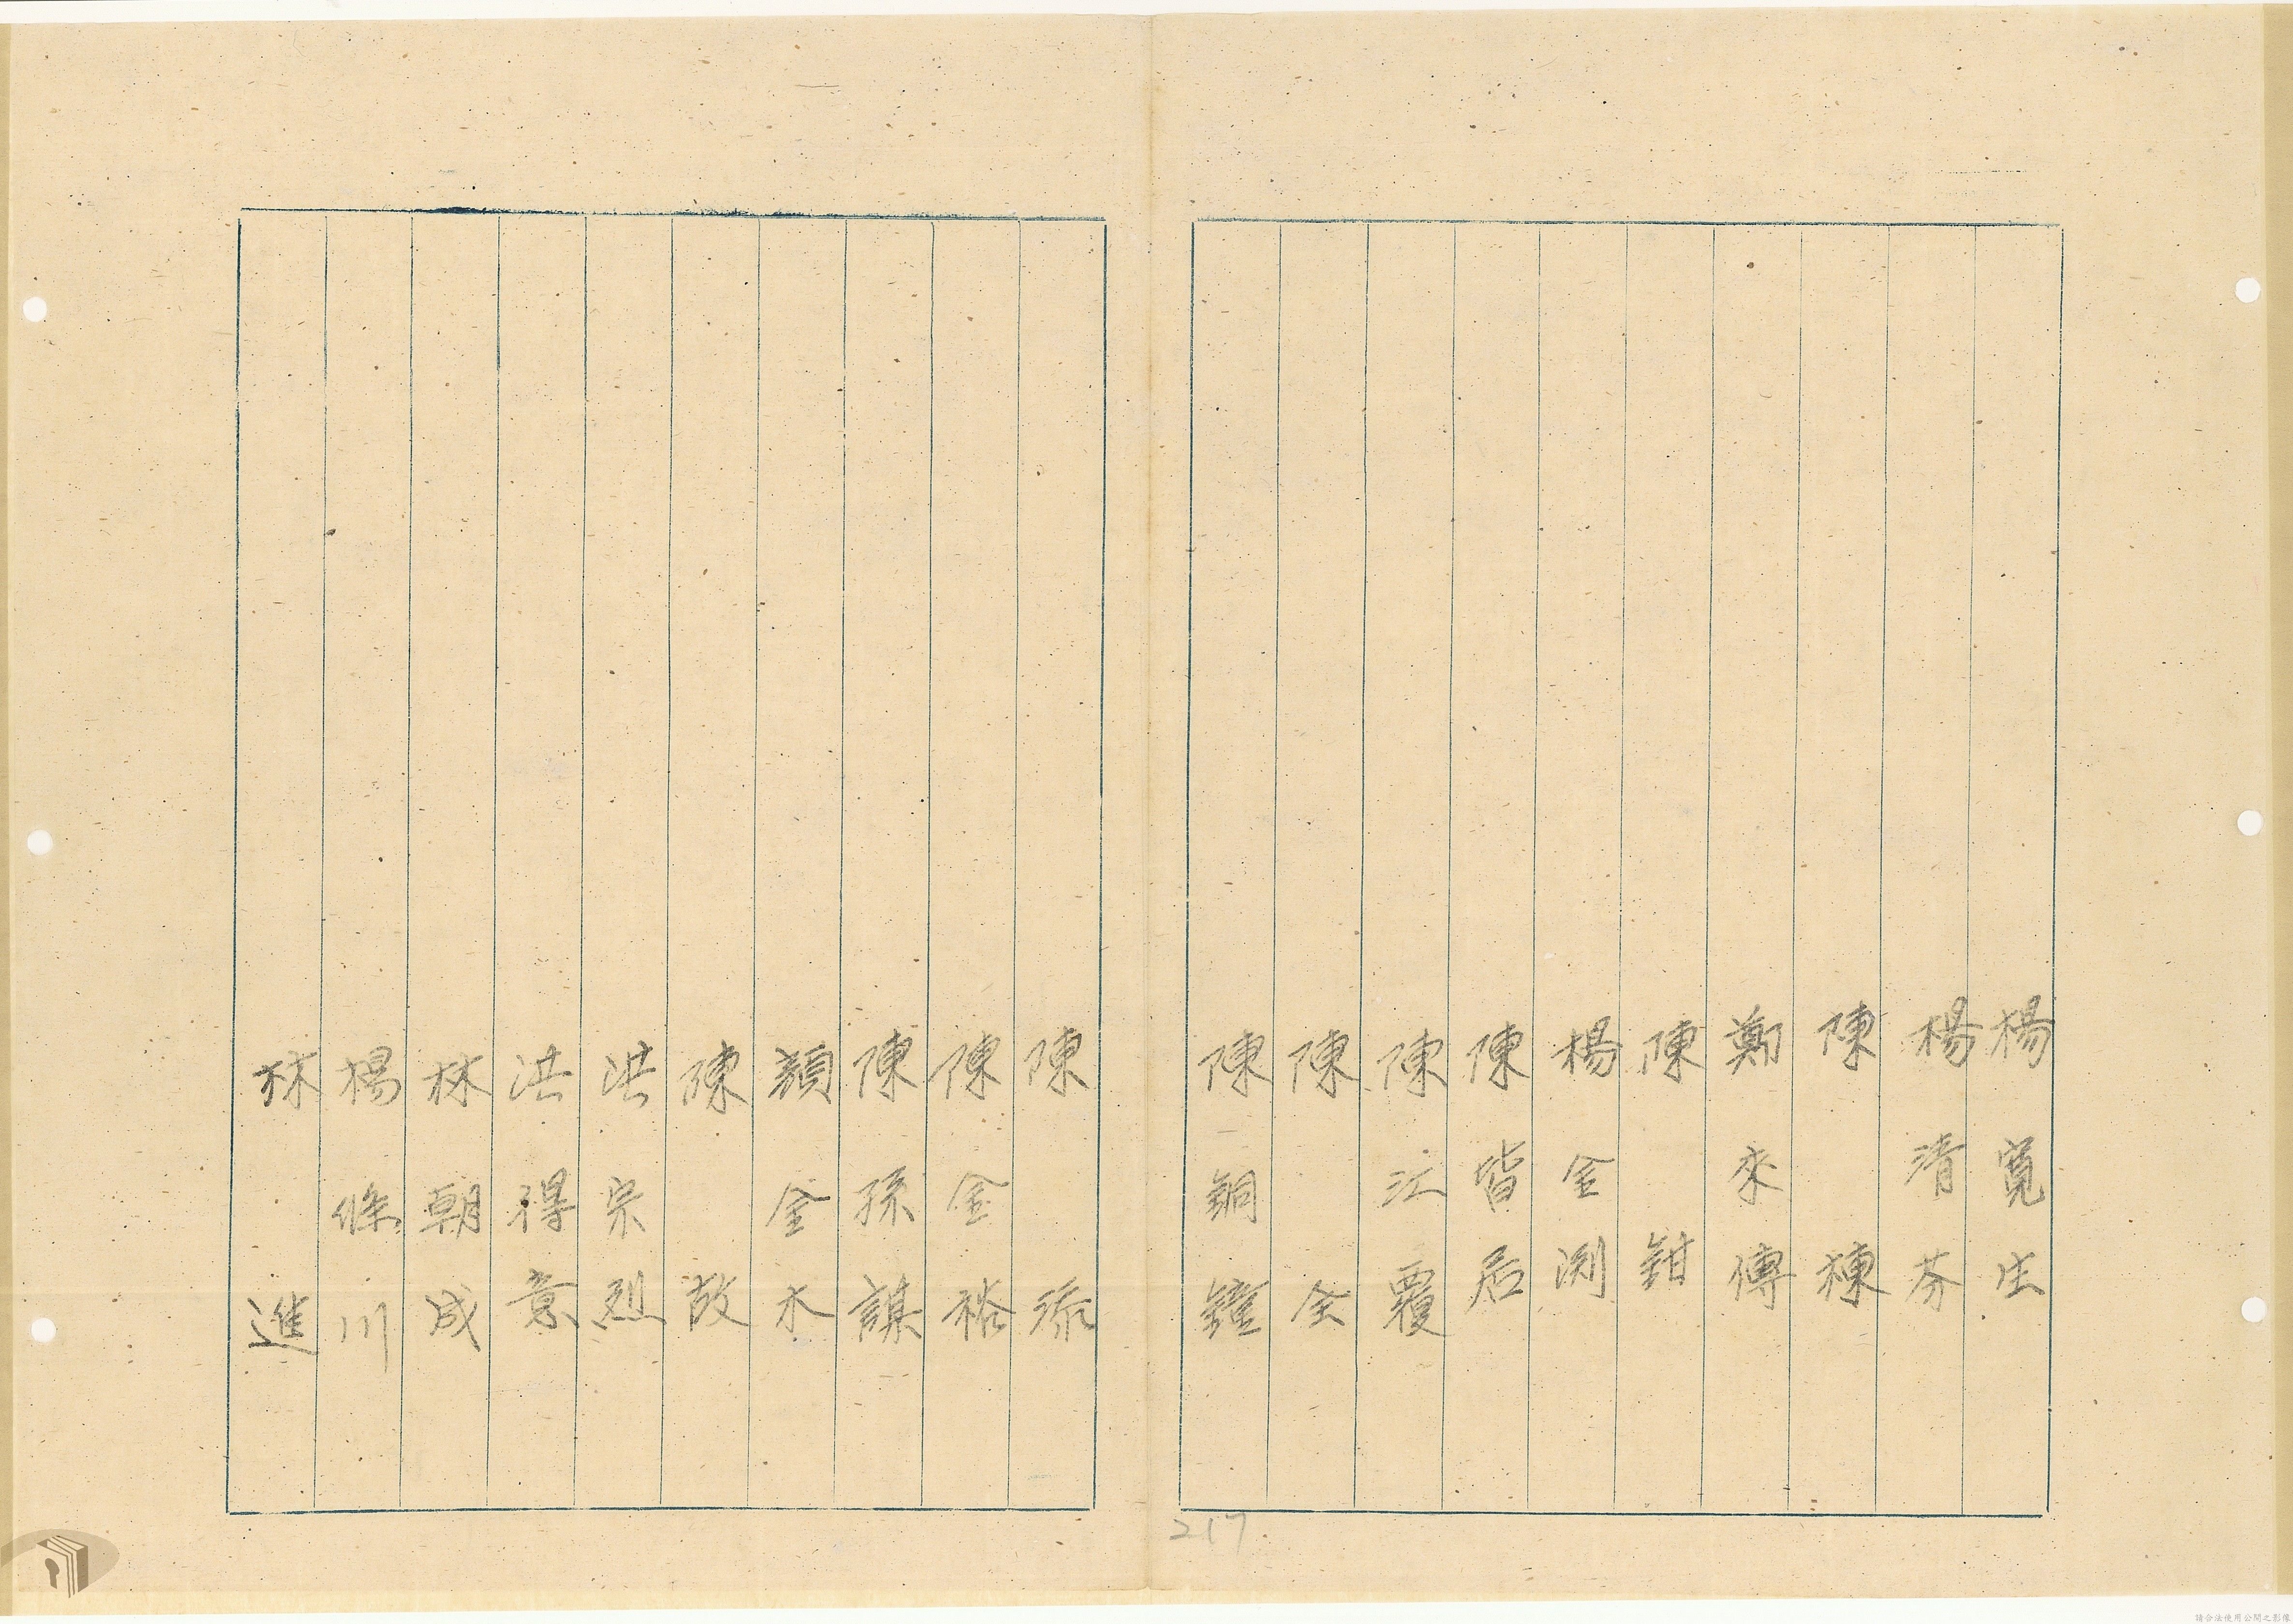 楊寬生
楊清芬
陳棟
鄭來傳
陳鉗
楊金測
陳皆后
陳江覆
陳全
陳銅鐘
陳添
陳金裕
陳孫謀
顏金水
陳啟
洪宗烈
洪得意
林朝成
楊條川
林進
217
請合法使用公開之影像